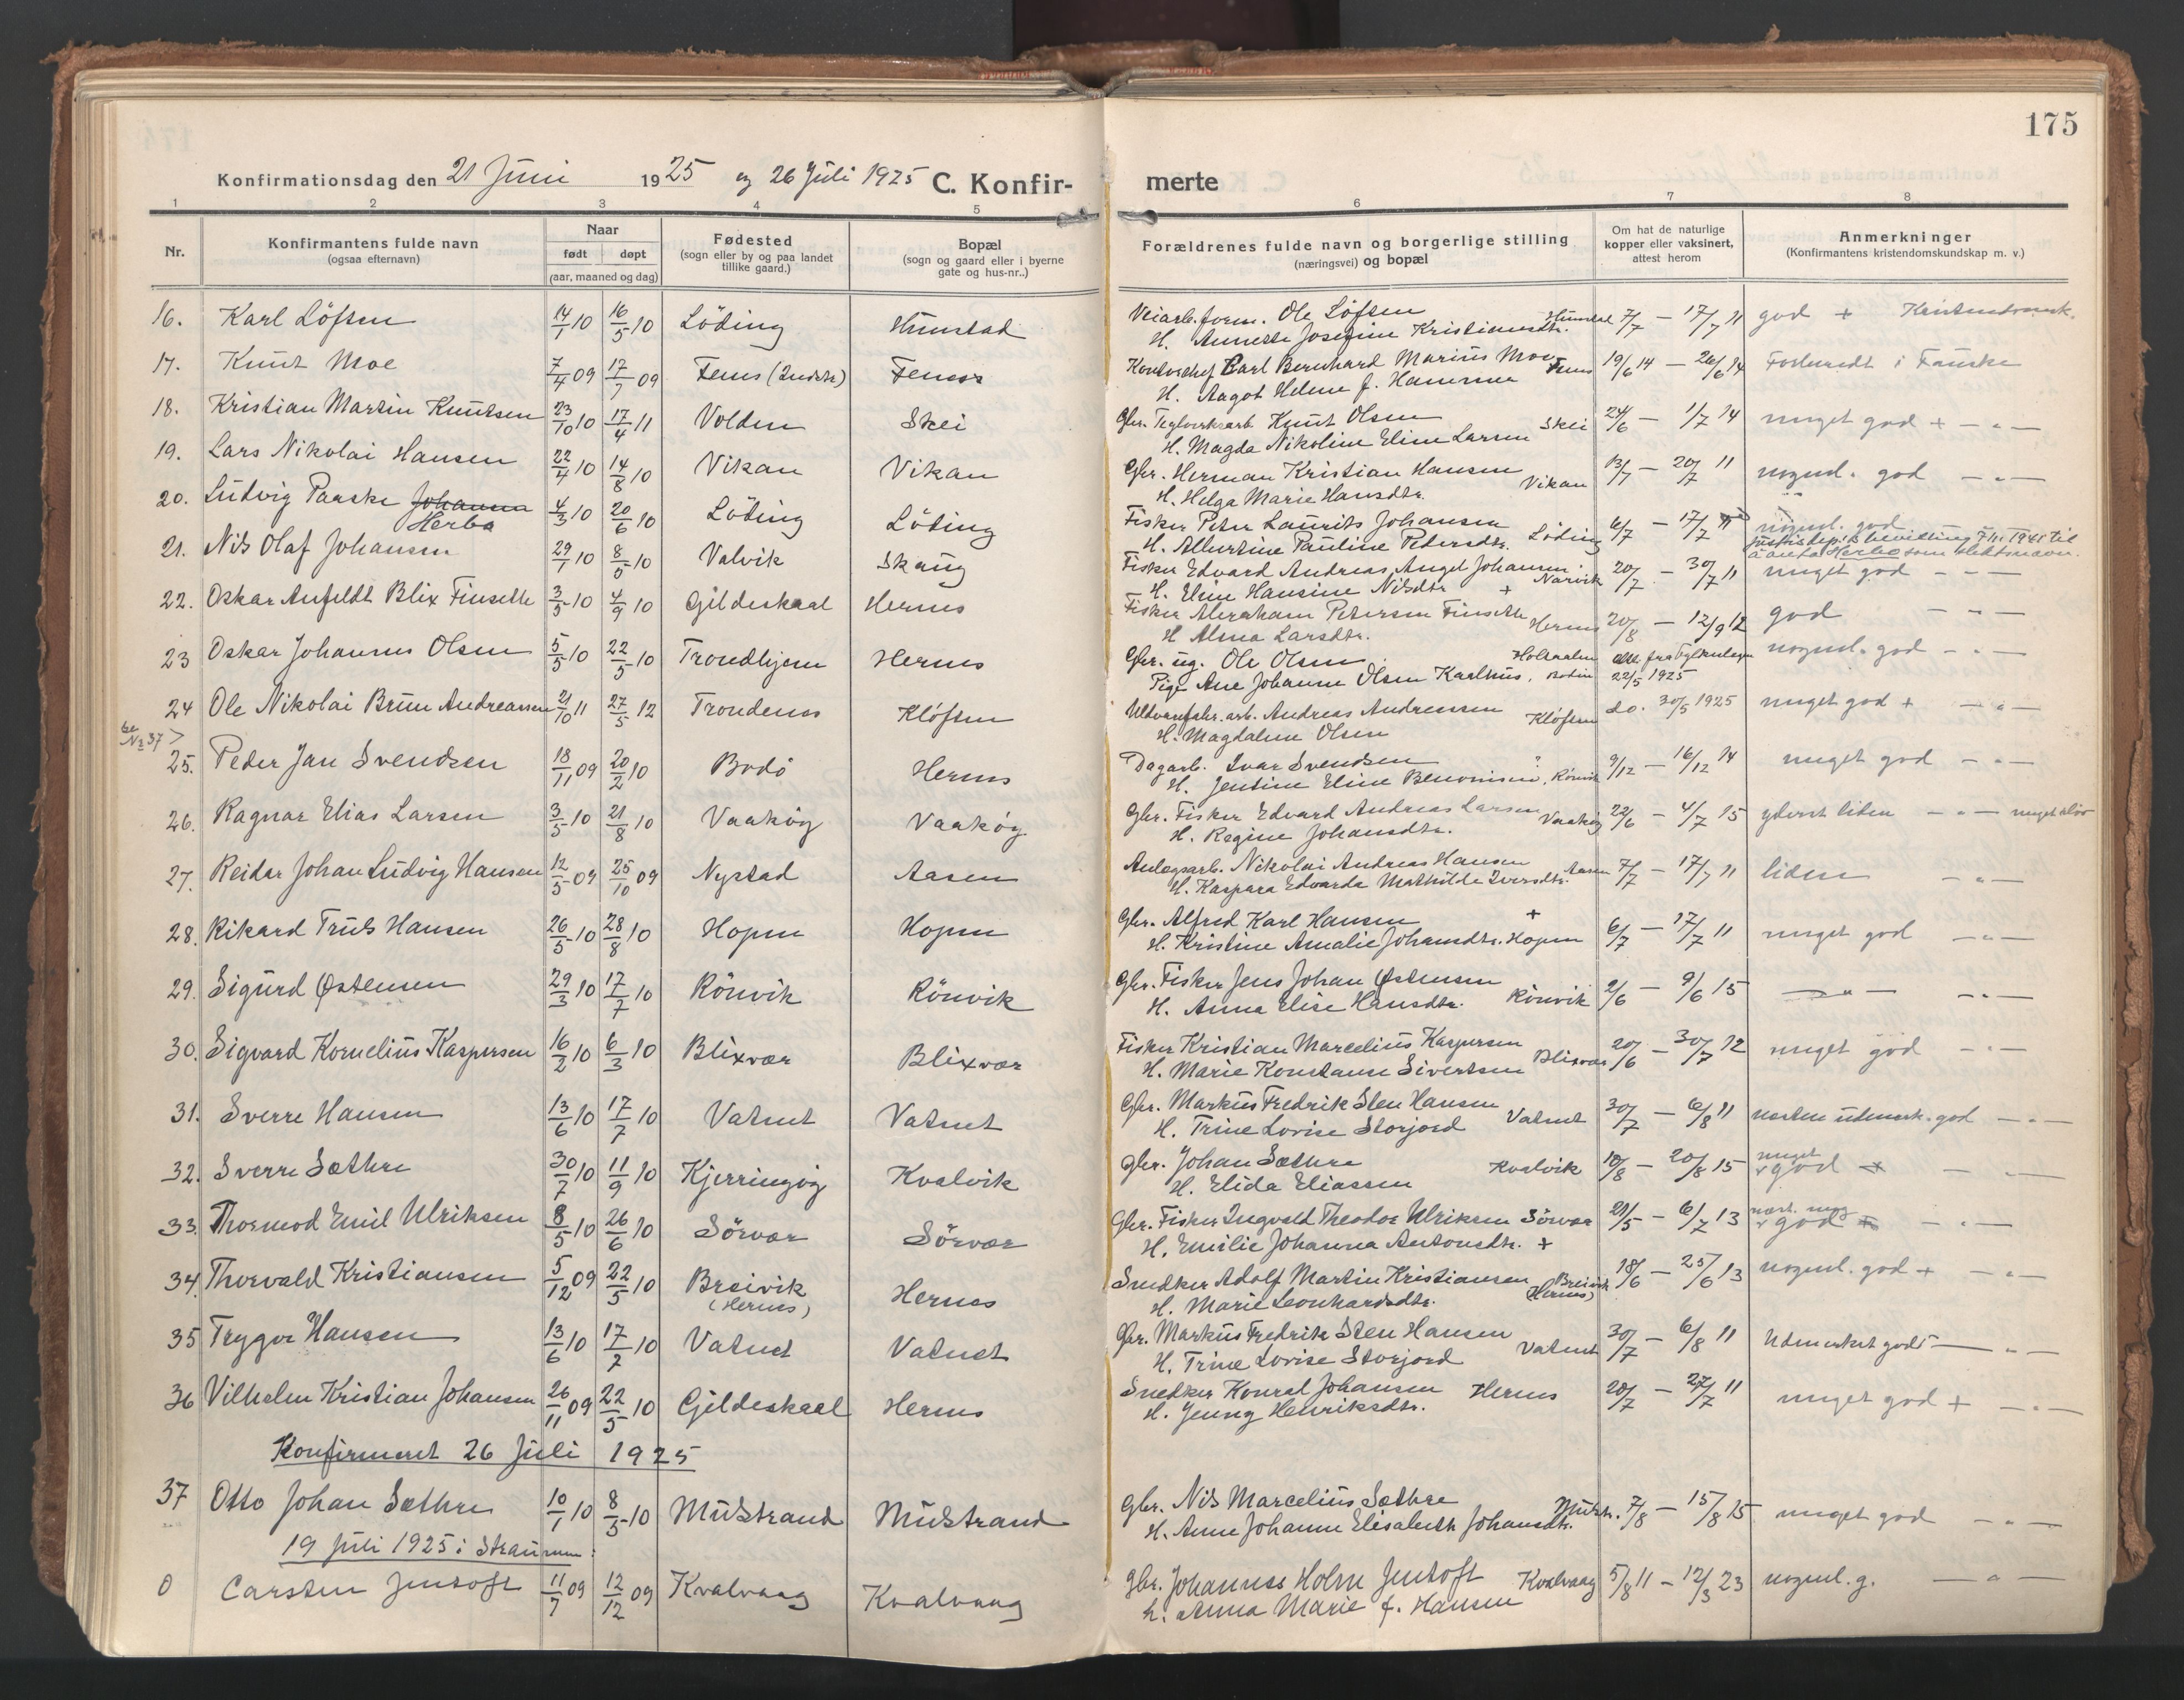 175
Konfirmationsdag den 21 Juni 1925 og 26 Juli 1925 C. Konfirmerte
1 2 3 4 5 6 7 8
Nr.
Konfirmantens fulde navn
(ogsaa efternavn)
Naar
født døpt
(aar, maaned og dag)
Fødested
(sogn eller by og paa landet
tillike gaard.)
Bopæl
(sogn og gaard eller i byerne
gate og hus-nr..)
Forældrenes fulde navn og borgerlige stilling
(næringsvei) og bopæl
Om hat de naturlige
kopper eller vaksinert,
attest herom
Anmerkninger
(Konfirmantens kristendomskundskap m. v.)
16. Karl Löfsen 14/1 10 16/5 10 Löding Hunstad Veiarb.form. Ole Löfsen Hunstad 7/7 — 17/7 11 god + Kristendomsk.
H. Annette Josefine Kristiansdtr.
17. Knut Moe 7/4 09 17/7 09 Fenes (Indstr) Feness Kontorchef Carl Bernhard Marius Moe Fenes 19/6 14 — 26/6 14 Forberedt i Fauske
H. Aagot Helene f. Hammer
18. Kristian Martin Knutsen 23/10 10 17/4 11 Volden Skei Gbr. Teglverksarb. Knut Olsen Skei 24/6 — 1/7 14 meget god + — " —
H. Magda Nikoline Eline Larsen
19. Lars Nikolai Hansen 22/4 10 14/8 10 Vikan Vikan Gbr. Herman Kristian Hansen Vikan 13/7 — 20/7 11 nogenl. god — " —
H. Helga Marie Hansdtr.
20. Ludvig Paaske Johansen Herbo 4/3 10 20/6 10 Löding Löding Fisker Peter Laurits Johansen Löding 6/7 — 17/7 11 nogenl. god
H. Albertine Pauline Petersdtr. justisdep.ts bevilling 7/11 1941 til
å anta Herbo som slektsnavn.
21. Nils Olaf Johansen 29/1 10 8/5 10 Valvik Skaug Fisker Edvard Andreas Angel Johansen Narvik 20/7 — 30/7 11 meget god — " —
H. Eline Hansine Nilsdtr. +
22. Oskar Anfeldt Blix Finseth 3/5 10 4/9 10 Gildeskaal Hernes Fisker Abraham Petersen Finseth Hernes 20/8 — 12/9 12 god — " —
H. Alma Larsdtr.
23 Oskar Johannes Olsen 5/5 10 22/5 10 Trondhjem Hernes Gbr. ug. Ole Olsen Holsaalen att. fra Fylkeslegen nogenl. god — " —
Pige Ane Johanne Olsen Kaalhus, Bodin 22/5 1925
24 Ole Nikolai Brun Andreassen 21/10 11 27/5 12 Trondenes Klöfsen Uldvarefabr. arb. Andreas Andreassen Klöfsen do. 30/5 1925 meget god + — " —
H. Magdalene Olsen
se No 37 >
25. Peder Jan Svendsen 18/11 09 20/2 10 Bodö Hernes Dagarb. Ivar Svendsen ? 9/12 — 16/12 14 meget god — " —
H. Jentine Eline Benonisen, Rönvik
26. Ragnar Elias Larsen 3/5 10 21/8 10 Vaaköy Vaaköy Gbr. Fisker Edvard Andreas Larsen Vaaköy 22/6 — 4/7 15 yderst liden — " — meget sløv
H. Regine Johansdtr.
27. Reidar Johan Ludvig Hansen 12/5 09 25/10 09 Nystad Aasen Anlegsarb. Nikolai Andreas Hansen Aasen 7/7 — 17/7 11 liden — " —
H. Kaspara Edvarda Mathilde Iversdtr.
28. Rikard Truls Hansen 26/5 10 28/8 10 Hopen Hopen Gbr. Alfred Karl Hansen + 6/7 — 17/7 11 meget god — " —
H. Kristine Amalie Johansdtr. Hopen
29. Sigurd Østensen 29/3 10 17/7 10 Rönvik Rönvik Gbr. Fisker Jens Johan Østensen 2/6 — 9/6 15 — " — — " —
H. Anna Elise Hansdtr. Rönvik
30. Sigvard Kornelius Kaspersen 16/2 10 6/3 10 Blixvær Blixvær Fisker Kristian Marcelius Kaspersen Blixvær 20/6 — 30/7 12 meget god — " —
H. Marie Konstanse Sivertsen
31. Sverre Hansen 13/6 10 17/7 10 Vatnet Vatnet Gbr. Markus Fredrik Sten Hansen Vatnet 30/7 — 6/8 11 næsten udmerk. god — " —
H. Trine Lovise Storjord
32. Sverre Sæthre 30/7 10 11/9 10 Kjerringöy Kvalvik Gbr. Johan Sæthre Kvalvik 10/8 — 20/8 15 meget god + — " —
H. Elida Eliassen
33. Thormod Emil Ulriksen 8/5 10 26/6 10 Sörvær Sörvær Gbr. Fisker Ingvald Theodor Ulriksen Sörvær 29/5 — 6/7 13 næst. meg god + — " —
H. Emilie Johanna Antonsdtr. +
34. Thorvald Kristiansen 5/12 09 22/5 10 Breivik (Hernes) Hernes Snedker Adolf Martin Kristiansen Breivik (Hernes) 18/6 — 25/6 13 nogenl. god + — " —
H. Marie Leonhardsdtr.
35 Trygve Hansen 13/6 10 17/7 10 Vatnet Vatnet Gbr. Markus Fredrik Sten Hansen Vatnet 30/7 — 6/8 11 Udmerket godt — " —
H. Trine Lovise Storjord
36 Vilhelm Kristian Johansen 26/11 09 22/5 10 Gildeskaal Hernes Snedker Konrad Johansen Hernes 20/7 — 27/7 11 meget god + — " —
H. Jenny Henriksdtr.
Konfirmeret 26 Juli 1925
37 Otto Johan Sæthre 10/1 10 8/5 10 Mulstrand Mulstrand Gbr. Nils Marcelius Sæthre Mulstr. 7/8 — 15/8 15 meget god — " —
H. Anne Johanne Elisabeth Johansdtr.
19 Juli 1925 i Straumen:
0 Carsten Jentoft 11/7 09 12/12 09 Kvalvaag Kvalvaag gbr. Johannes Holm Jentoft Kvalvaag 5/8 11 — 12/3 23 nogenl. g. — " —
h. Anna Marie f. Hansen